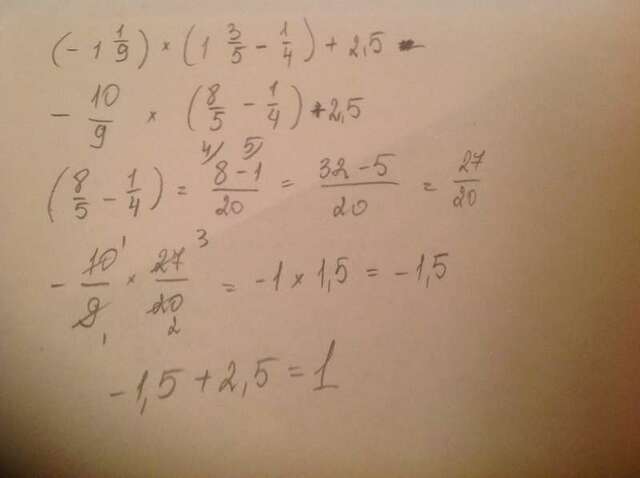 (-1 1/9) × (1 3/5 - 1/4) + 2,5
- 10/9 × (8/5 - 1/4) + 2,5
(8/5 - 1/4) = 4/ 8 - 5/ 1 / 20 = 32 - 5 / 20 = 27/20
- 10 1 / 9 1 × 27 3 / 20 2 = -1 × 1,5 = -1,5
-1,5 + 2,5 = 1